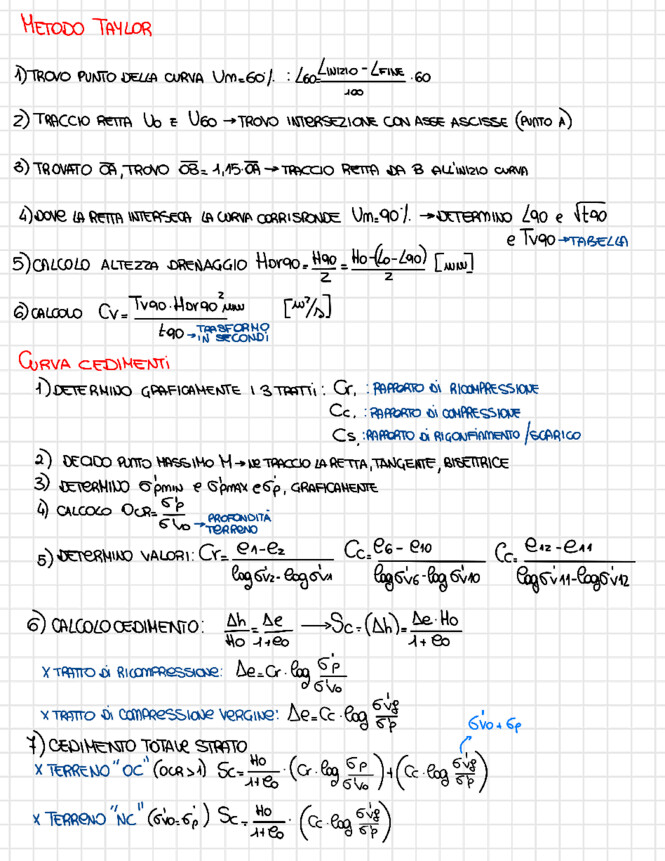 METODO TAYLOR
1) TROVO PUNTO DELLA CURVA Um=60% : L60 (LINIZIO - LFINE)/100 · 60
2) TRACCIO RETTA U0 E U60 → TROVO INTERSEZIONE CON ASSE ASCISSE (PUNTO A)
3) TROVATO O̅A̅, TROVO O̅B̅ = 1,15·O̅A̅ → TRACCIO RETTA DA B ALL'INIZIO CURVA
4) DOVE LA RETTA INTERSECA LA CURVA CORRISPONDE Um=90% → DETERMINO L90 e √t90
e Tv90 → TABELLA
5) CALCOLO ALTEZZA DRENAGGIO Hdr90 = H90/2 = H0-(L0-L90)/2 [mm]
6) CALCOLO Cv = Tv90 · Hdr90² mm / t90 [m²/s]
→ TRASFORMO
IN SECONDI
CURVA CEDIMENTI
1) DETERMINO GRAFICAMENTE I 3 TRATTI : Cr, : RAPPORTO DI RICOMPRESSIONE
Cc, : RAPPORTO DI COMPRESSIONE
Cs, : RAPPORTO DI RIGONFIAMENTO/SCARICO
2) DECIDO PUNTO MASSIMO M → NE TRACCIO LA RETTA, TANGENTE, BISETTRICE
3) DETERMINO σ'pmin e σ'pmax e σ'p, GRAFICAMENTE
4) CALCOLO OCR = σ'p/σ'v0 → PROFONDITÀ
TERRENO
5) DETERMINO VALORI : Cr = (e1-e2)/(log σ'v2 - log σ'v1) Cc = (e6-e10)/(log σ'v6 - log σ'v10) Cc = (e12-e11)/(log σ'v11 - log σ'v12)
6) CALCOLO CEDIMENTO : Δh/H0 = Δe/(1+e0) → Sc = (Δh) = Δe·H0/(1+e0)
x TRATTO DI RICOMPRESSIONE : Δe = Cr · log σ'p/σ'v0
x TRATTO DI COMPRESSIONE VERGINE : Δe = Cc · log σ'vf/σ'p
σ'v0 + σp
7) CEDIMENTO TOTALE STRATO
x TERRENO "OC" (OCR>1) Sc = H0/(1+e0) · (Cr · log σ'p/σ'v0) + (Cc · log σ'vf/σ'p)
x TERRENO "NC" (σ'v0 = σ'p) Sc = H0/(1+e0) · (Cc · log σ'vf/σ'p)